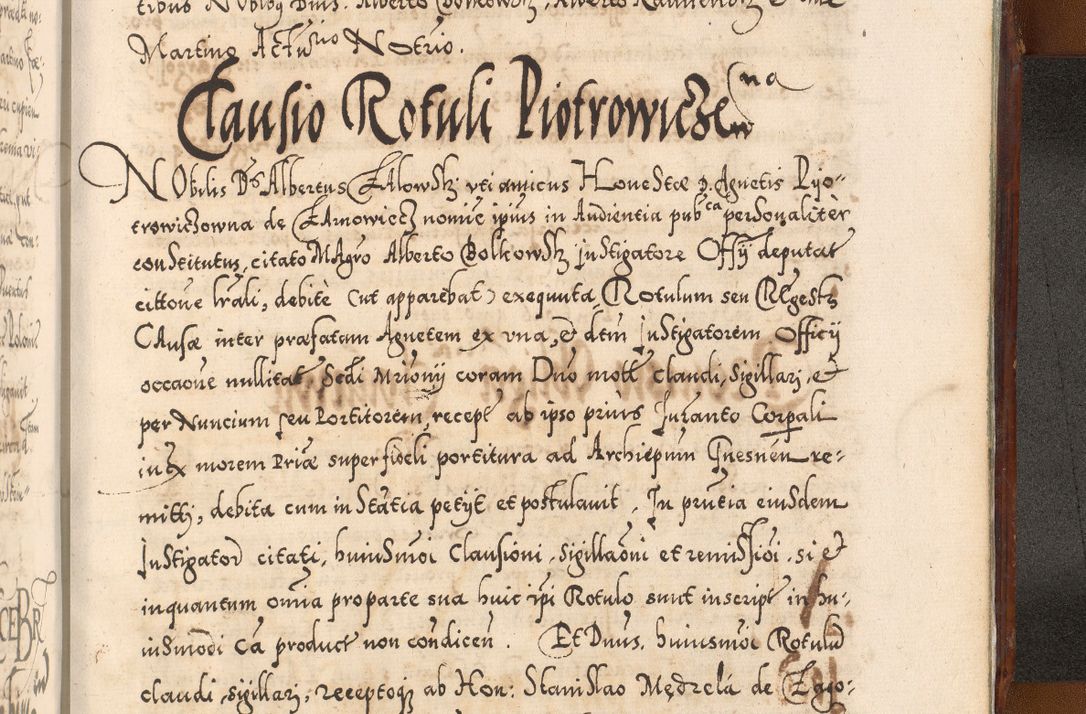 tibus Nobil9 Dnis. Alberto Bolkowsk, Alberto
Martino Actusrio Notrio.
Clausio Rotuli Piotrowiczewna
NObilis Ds Albertus CZAlowsk; vti amicus HoneStæ p. Agnetis Pyo-
trowiczowna de CZArnowiecz nomie ipius in Audientia pubca perSonaliter
conStitutus, citato MAgro Alberto Bolkowsk jnStigatore Offij deputat
cittoue lrali, debite (ut apparebat) exequuta, Rotulum seu REgestr
CAusæ inter præfatam Agnetem ex vna, et dtm jnStigatorem Officij
occaoue nullitat, Sedi Mrionij coram Dno mott claudi, Sigillari, et
per Nuncium seu Portitorem, recept ab ipso prius Juranto Corpali
in Ex morem Priæ super fideli portitura ad Archiepum Gnesnen re-
mitti, debita cum inStatia petijt et postulauit. In prntia eiuSdem
jnStigator citati, huiuSmoi Clausioni, Sigillaoni et remissioi, si et
inquantum omia proparte sua huic ipi Rotulo sunt inscript in hu-
iuSmodi Ca product non condicen. Et Dnus, huiusmoi Rotulu
claudi, sigillari, receptoq ab Hon: StaniSlao Mędrelá de